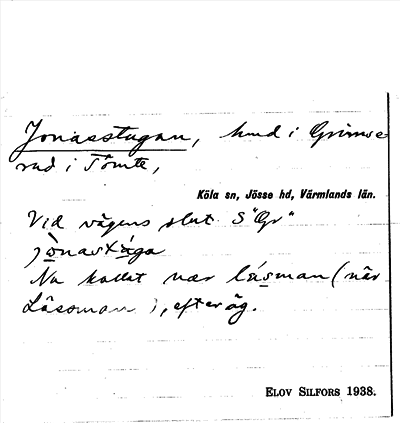 Jonasstugan, hmd i Grimse
rud i Tömte,
Köla sn, Jösse hd, Värmlands län.
Vid vägens slut S "Gr"
Nu kallat nær låsman (när
Låsoman), efter äg.
ELOV SILFORS 1938.